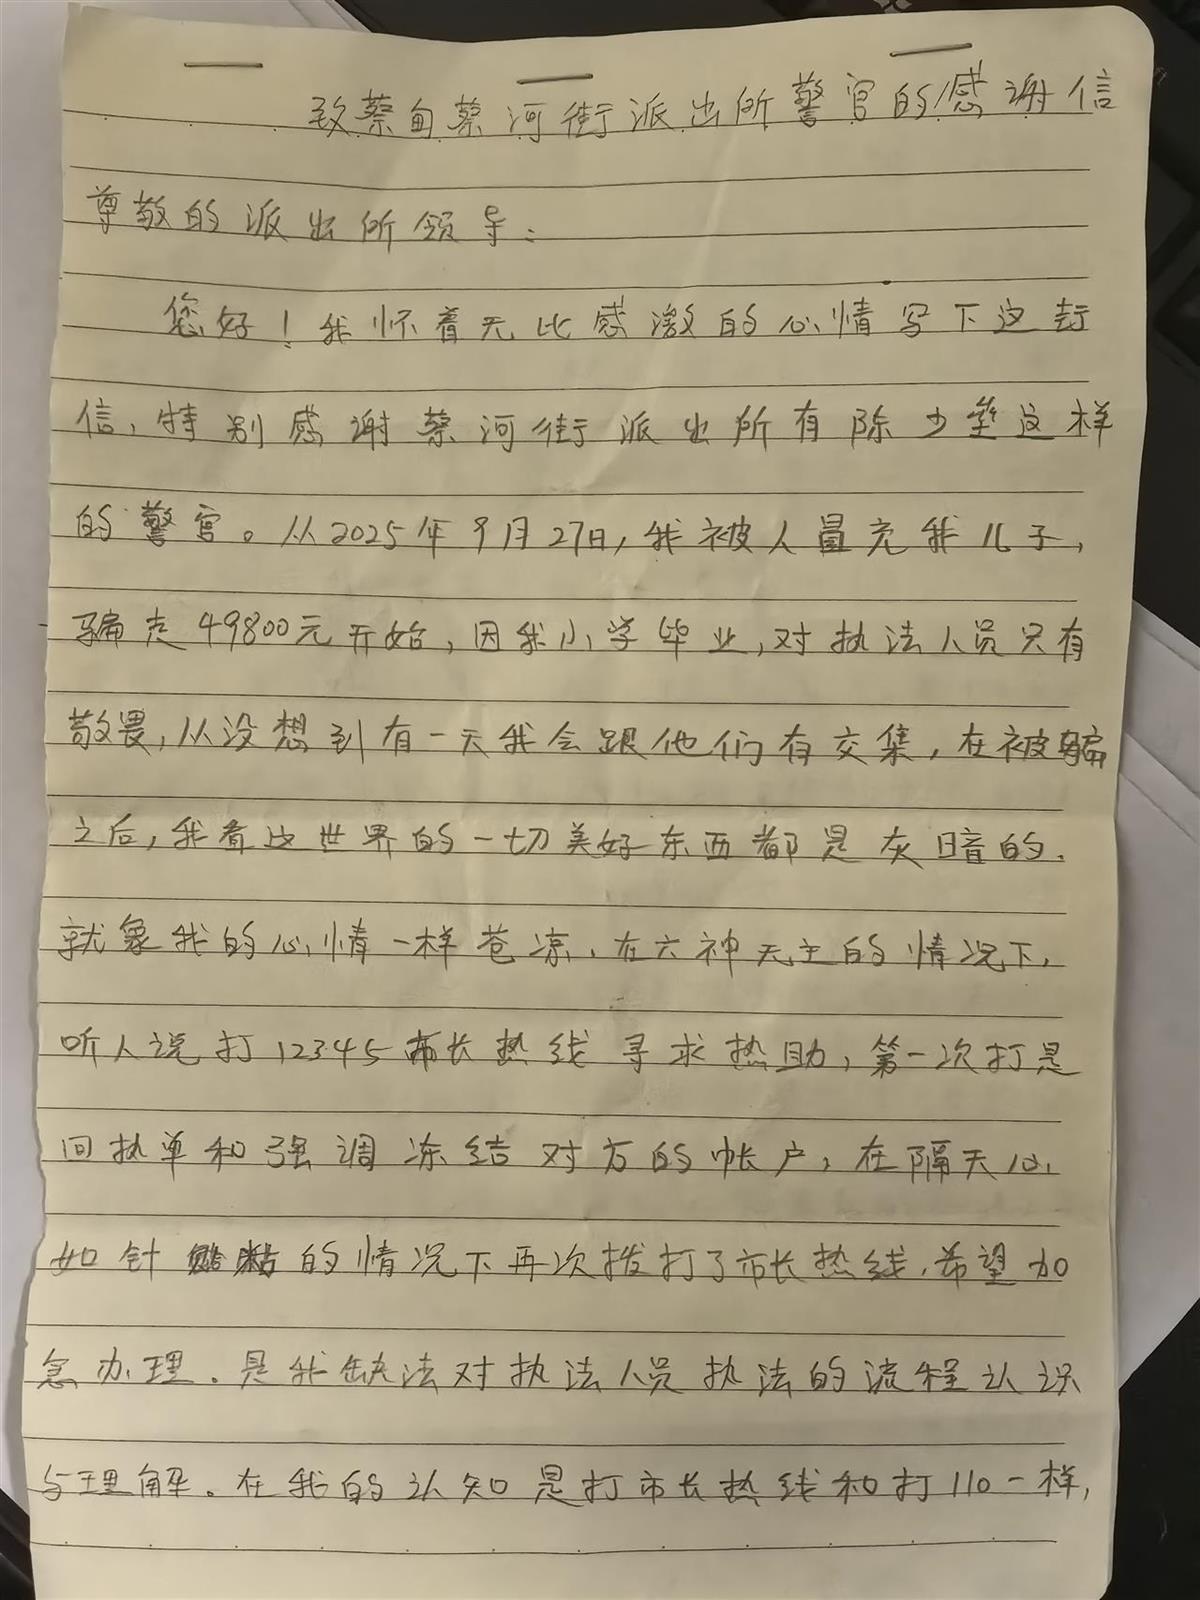 致蔡甸蔡河街派出所警官的感谢信
尊敬的派出所领导:
您好!我怀着无比感激的心情写下这封
信,特别感谢蔡河街派出所有除少垒这样
的警官。从2025年9月27日,我被人冒充我儿子,
骗走49800元开始,因我小学毕业,对执法人员只有
敬畏,从没想到有一天我会跟他们有交集,在被骗
之后,我看这世界的一切美好东西都是灰暗的.
就象我的心情一样苍凉.在六神无主的情况下,
听人说打12345市长热线寻求热助,第一次打是
回执单和强调冻结对方的帐户,在隔天心
如针的情况下再次拨打了市长热线.希望加
急办理.是我缺法对执法人员执法的流程认识
与理解。在我的认知是打市长热线和打110一样,